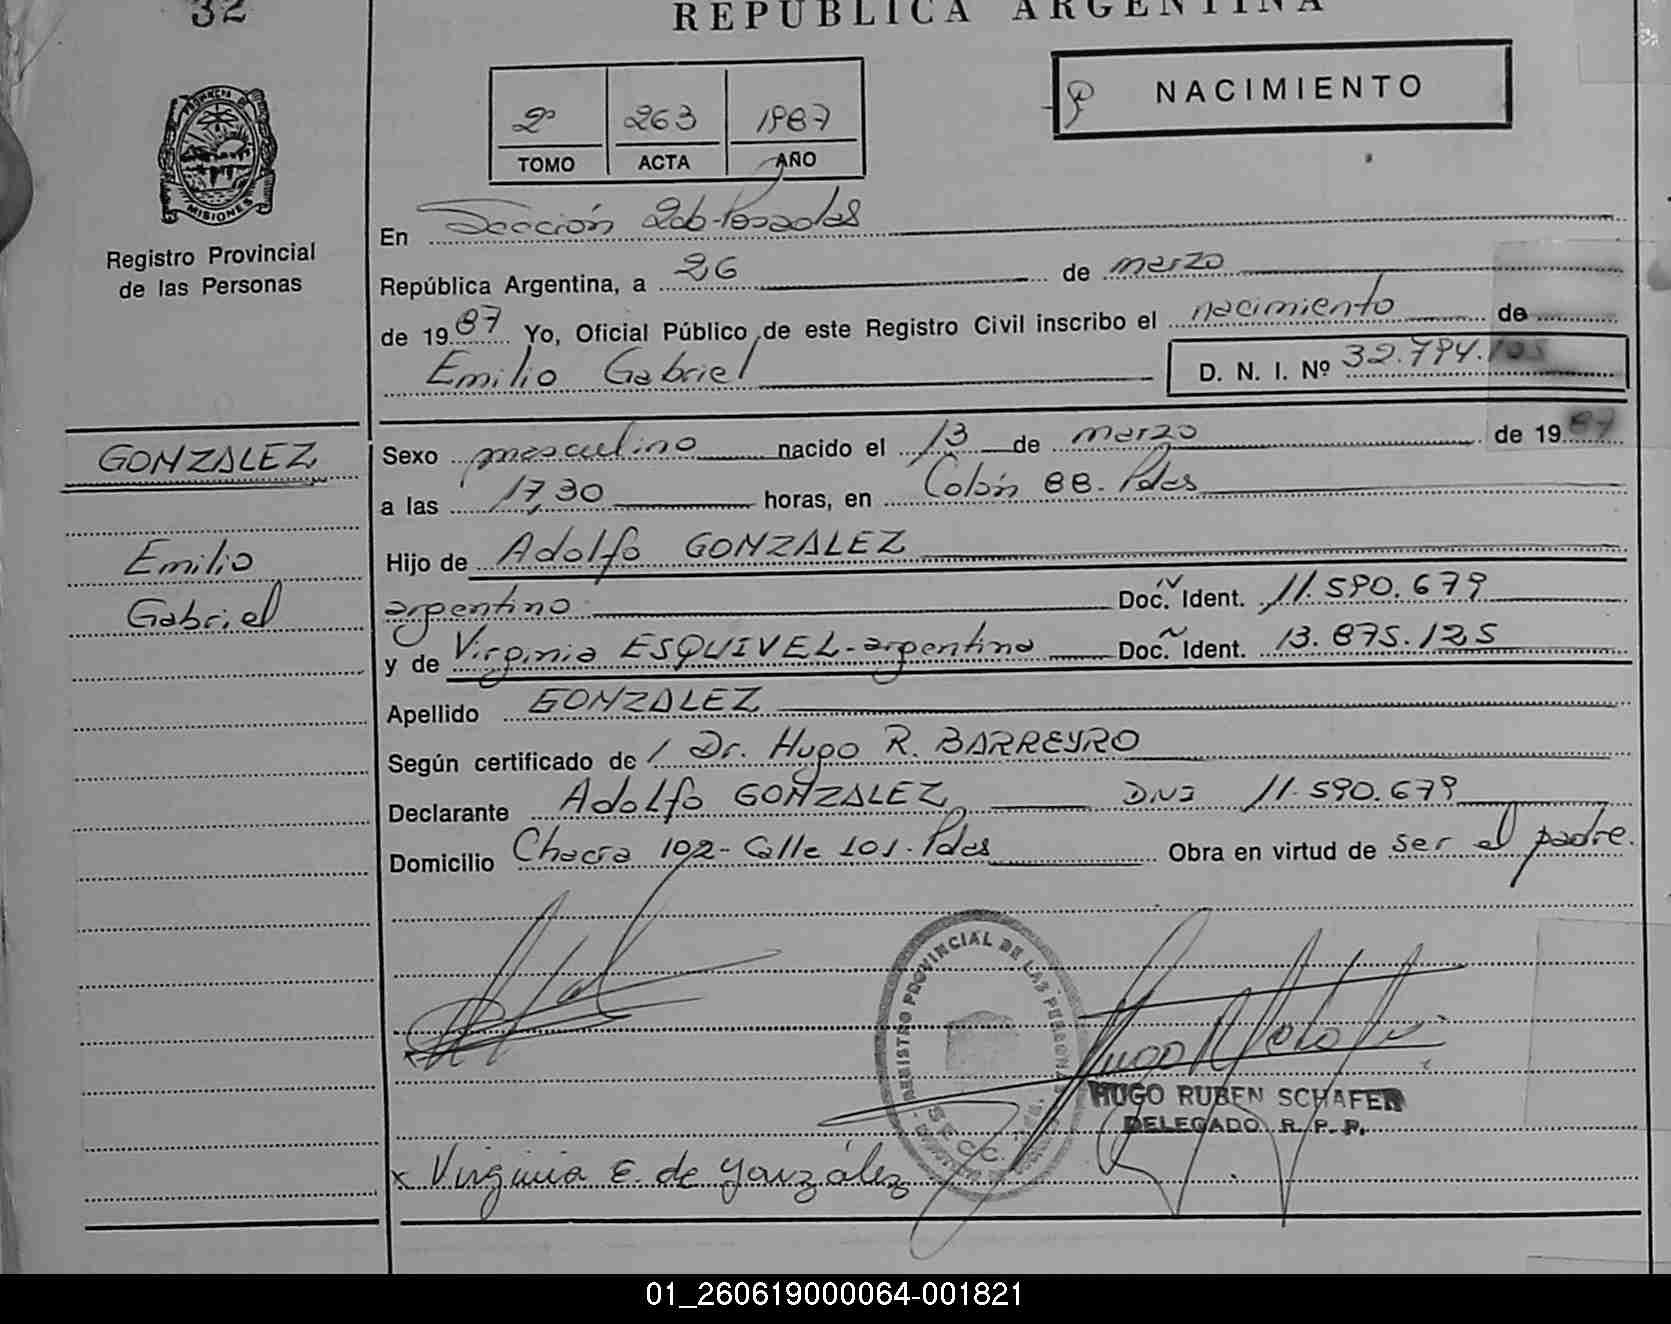 32
REPUBLICA ARGENTINA
NACIMIENTO
2º 263 1987
TOMO ACTA AÑO
PROVINCIA DE MISIONES
Registro Provincial
de las Personas
En Sección 2da-Posadas
República Argentina, a 26 de marzo
de 1987 Yo, Oficial Público de este Registro Civil inscribo el nacimiento de
Emilio Gabriel D. N. I. Nº 32.794.105
GONZALEZ
Emilio
Gabriel
Sexo masculino nacido el 13 de marzo de 1987
a las 17,30 horas, en Colón BB. Pdas
Hijo de Adolfo GONZALEZ
argentino Doc. Ident. 11.590.679
y de Virginia ESQUIVEL-argentina Doc. Ident. 13.875.125
Apellido GONZALEZ
Según certificado de / Dr. Hugo R. BARREYRO
Declarante Adolfo GONZALEZ DNI 11.590.679
Domicilio Chacra 102-Calle 101. Pdas Obra en virtud de ser el padre.
REGISTRO PROVINCIAL DE LAS PERSONAS
SECC.
HUGO RUBEN SCHAFER
DELEGADO R. P. P.
x Virginia E. de González
01_260619000064-001821